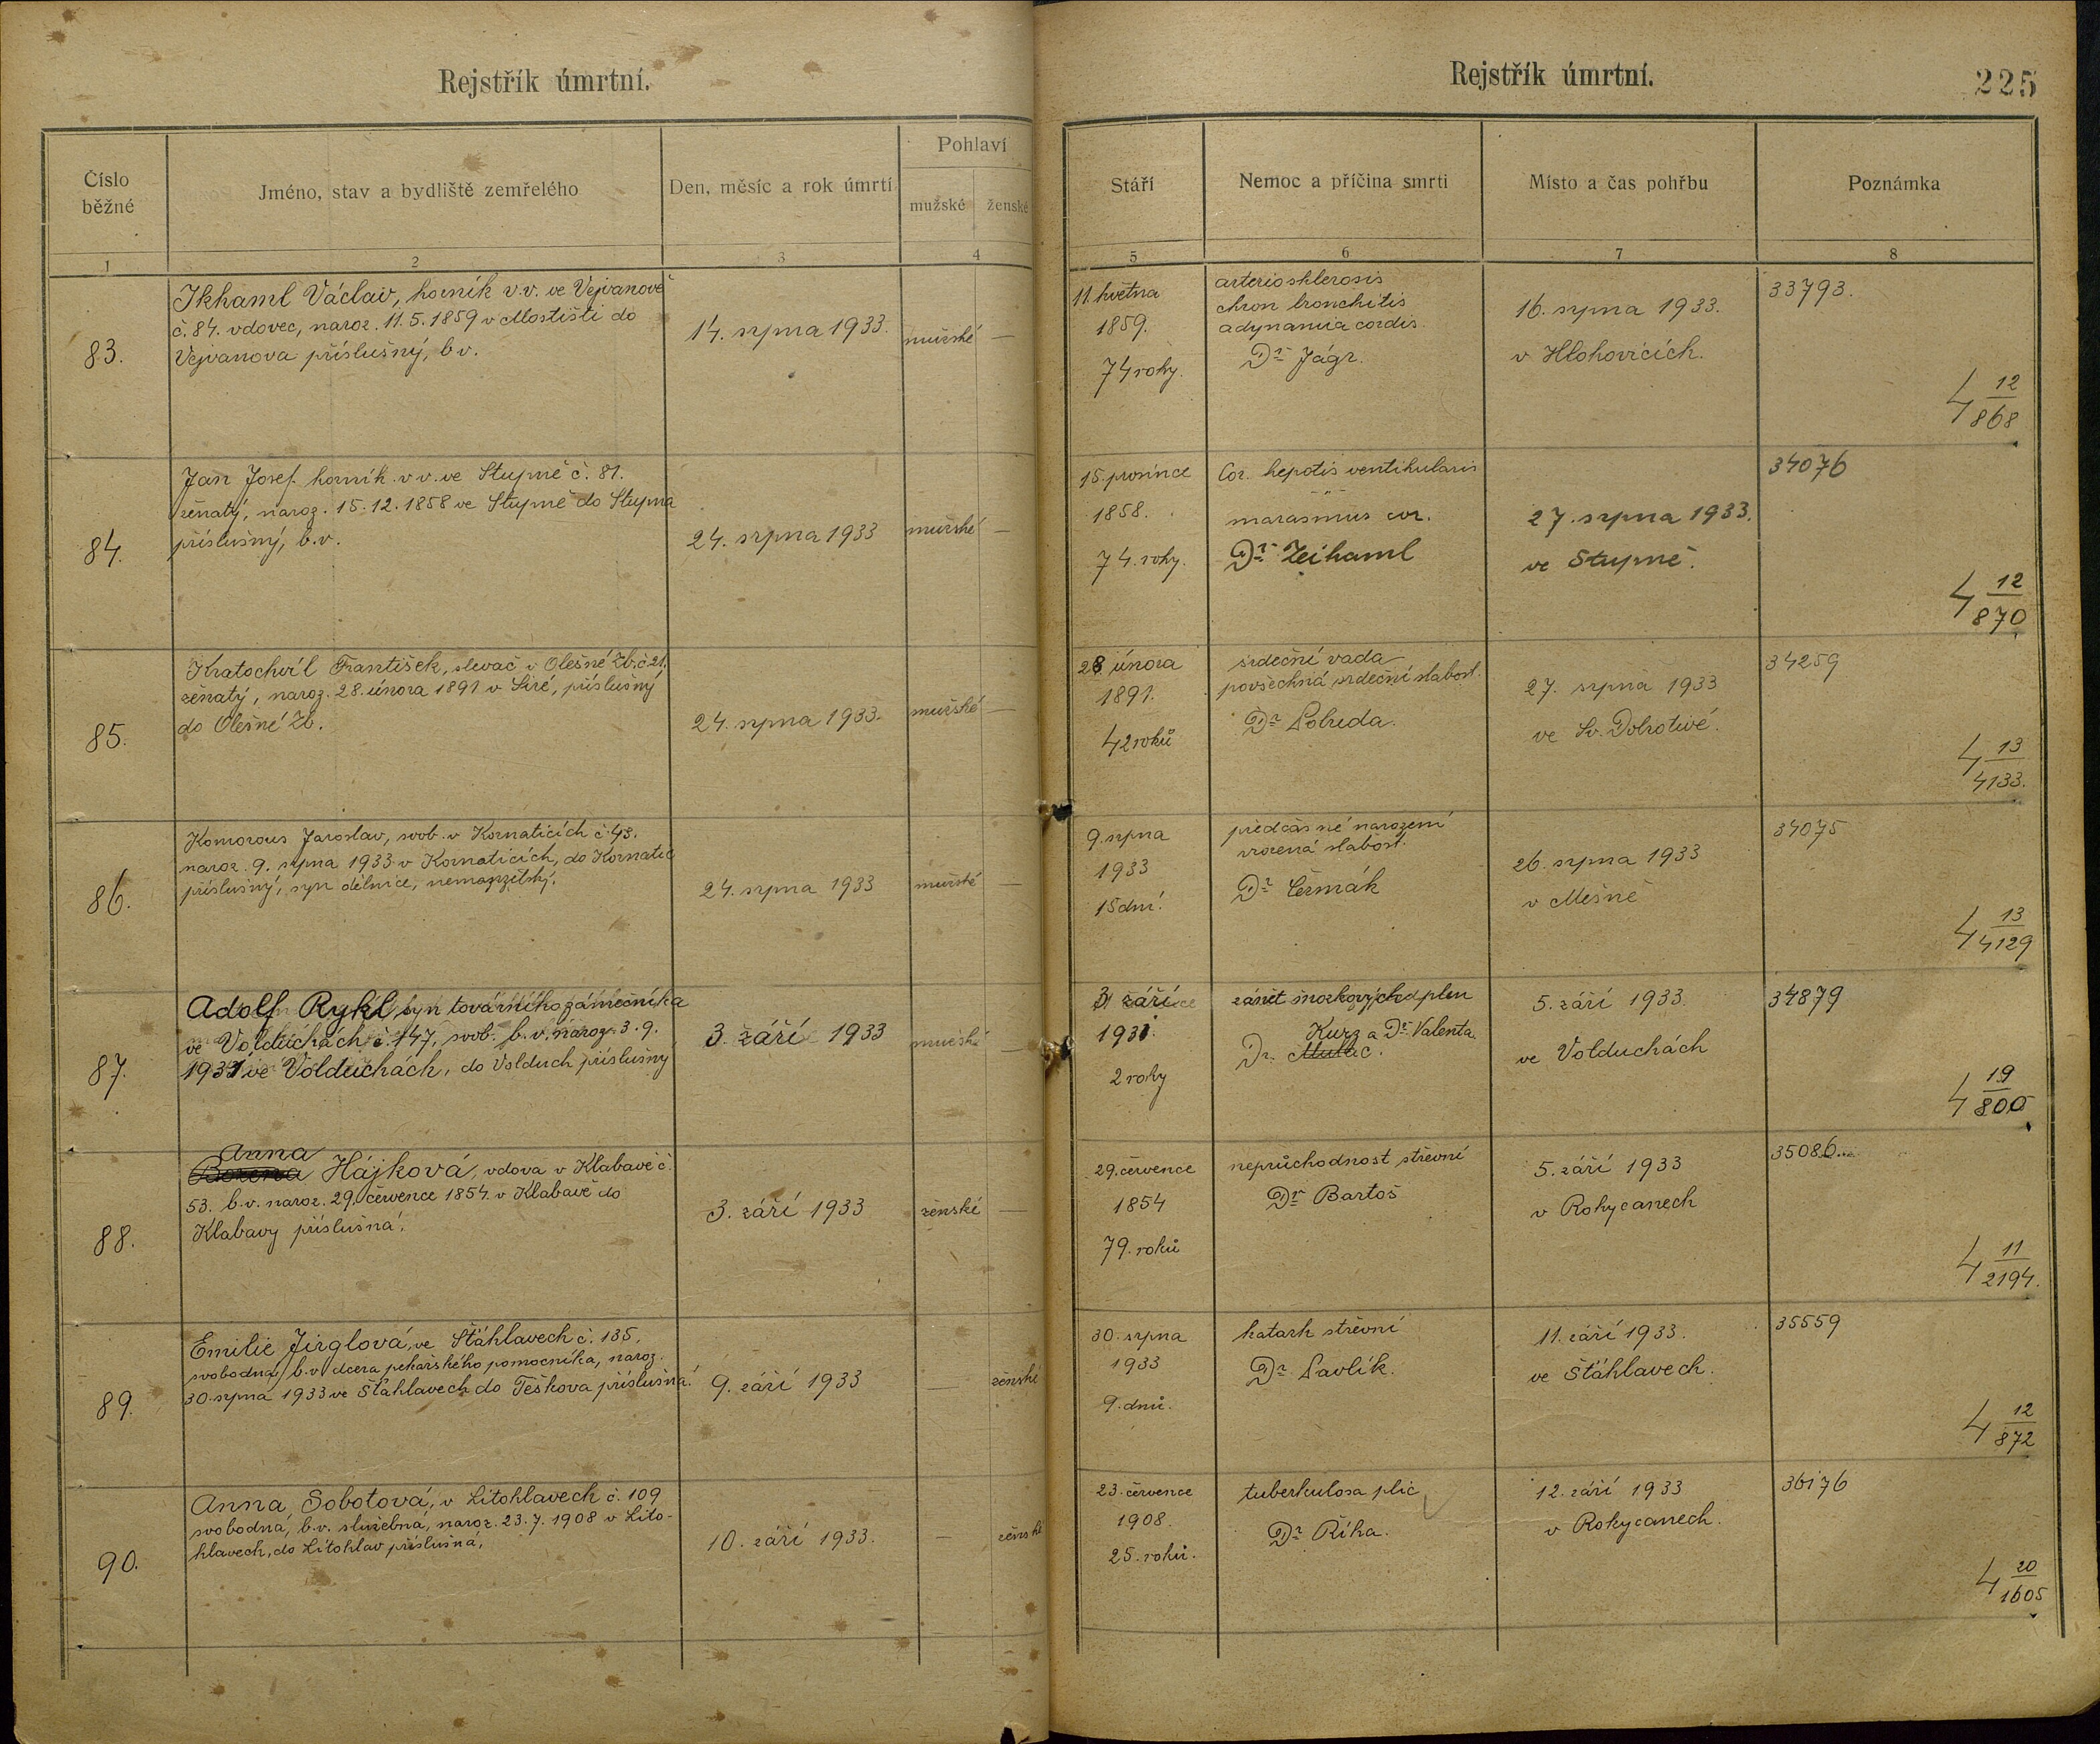 Rejstřík úmrtní.
Číslo běžné
Jméno, stav a bydliště zemřelého
Den, měsíc a rok úmrtí
Pohlaví
mužské
ženské
1
2
3
4
Rejstřík úmrtní.
225
Stáří
Nemoc a příčina smrti
Místo a čas pohřbu
Poznámka
5
6
7
8
83.
Ikhaml Václav, horník v.v. ve Vejvanově
č. 84. vdovec, naroz. 11.5.1859 v Mostišti do
Vejvanova příslušný, b.v.
14. srpna 1933.
mužské —
11. května
1859.
74 roky.
arteriosklerosis
chron bronchitis
adynamia cordis.
Dr Jágr.
16. srpna 1933.
v Hlohovicích.
33793.
4 12/868
84.
Jan Josef horník v.v. ve Stupně č. 81.
ženatý, naroz. 15.12.1858 ve Stupně do Stupna
příslušný, b.v.
24. srpna 1933
mužské —
15. prosince
1858.
74. roky.
Cor. hepotis ventikularis
marasmus cor.
Dr Zeihaml
27. srpna 1933.
ve Stupně.
34076
4 12/870
85.
Kratochvíl František, slevač v Olešné Zb. č. 21.
ženatý, naroz. 28. února 1891 v Siré, příslušný
do Olešné Zb.
24. srpna 1933.
mužské —
28 února
1891.
42 roků
srdeční vada
povšechná srdeční slabost.
Dr Pobuda.
27. srpna 1933
ve Sv. Dobrotivé.
34259
4 13/4133.
86.
Komorous Jaroslav, svob. v Kornaticích č. 43.
naroz. 9. srpna 1933 v Kornaticích, do Kornatic
příslušný, syn dělnice, nemanželský.
24. srpna 1933
mužské —
9. srpna
1933
15 dní.
předčasné narození
vrozená slabost.
Dr Čermák
26. srpna 1933
v Mešně
34075
4 13/4129
87.
Adolf Rykl, syn továrního zámečníka
ve Volduchách č. 147, svob. b.v. naroz. 3. 9.
1931 ve Volduchách, do Volduch příslušný
3. září 1933
mužské —
3 září
1931.
2 roky
zánět mozkových plen
Kurz a Dr Valenta
Dr.
5. září 1933.
ve Volduchách
34879
4 19/800
88.
Anna
Božena Hájková, vdova v Klabavě č.
53. b.v. naroz. 29. července 1854. v Klabavě do
Klabavy příslušná.
3. září 1933
ženské —
29. července
1854
79. roků
neprůchodnost střevní
Dr Bartoš
5. září 1933
v Rokycanech
35086...
4 11/2194.
89.
Emilie Jirglová, ve Šťáhlavech č. 135.
svobodná, b.v. dcera pekařského pomocníka, naroz.
30. srpna 1933 ve Šťáhlavech do Těškova příslušná.
9. září 1933
— ženské
30. srpna
1933
9. dnů.
katarh střevní
Dr Pavlík.
11. září 1933.
ve Šťáhlavech.
35559
4 12/872
90.
Anna Sobotová, v Litohlavech č. 109
svobodná, b.v. služebná, naroz. 23.7.1908 v Lito-
hlavech, do Litohlav příslušná.
10. září 1933.
— ženské
23. července
1908.
25. roků.
tuberkulosa plic
Dr Říha.
12. září 1933
v Rokycanech.
36176
4 20/1605